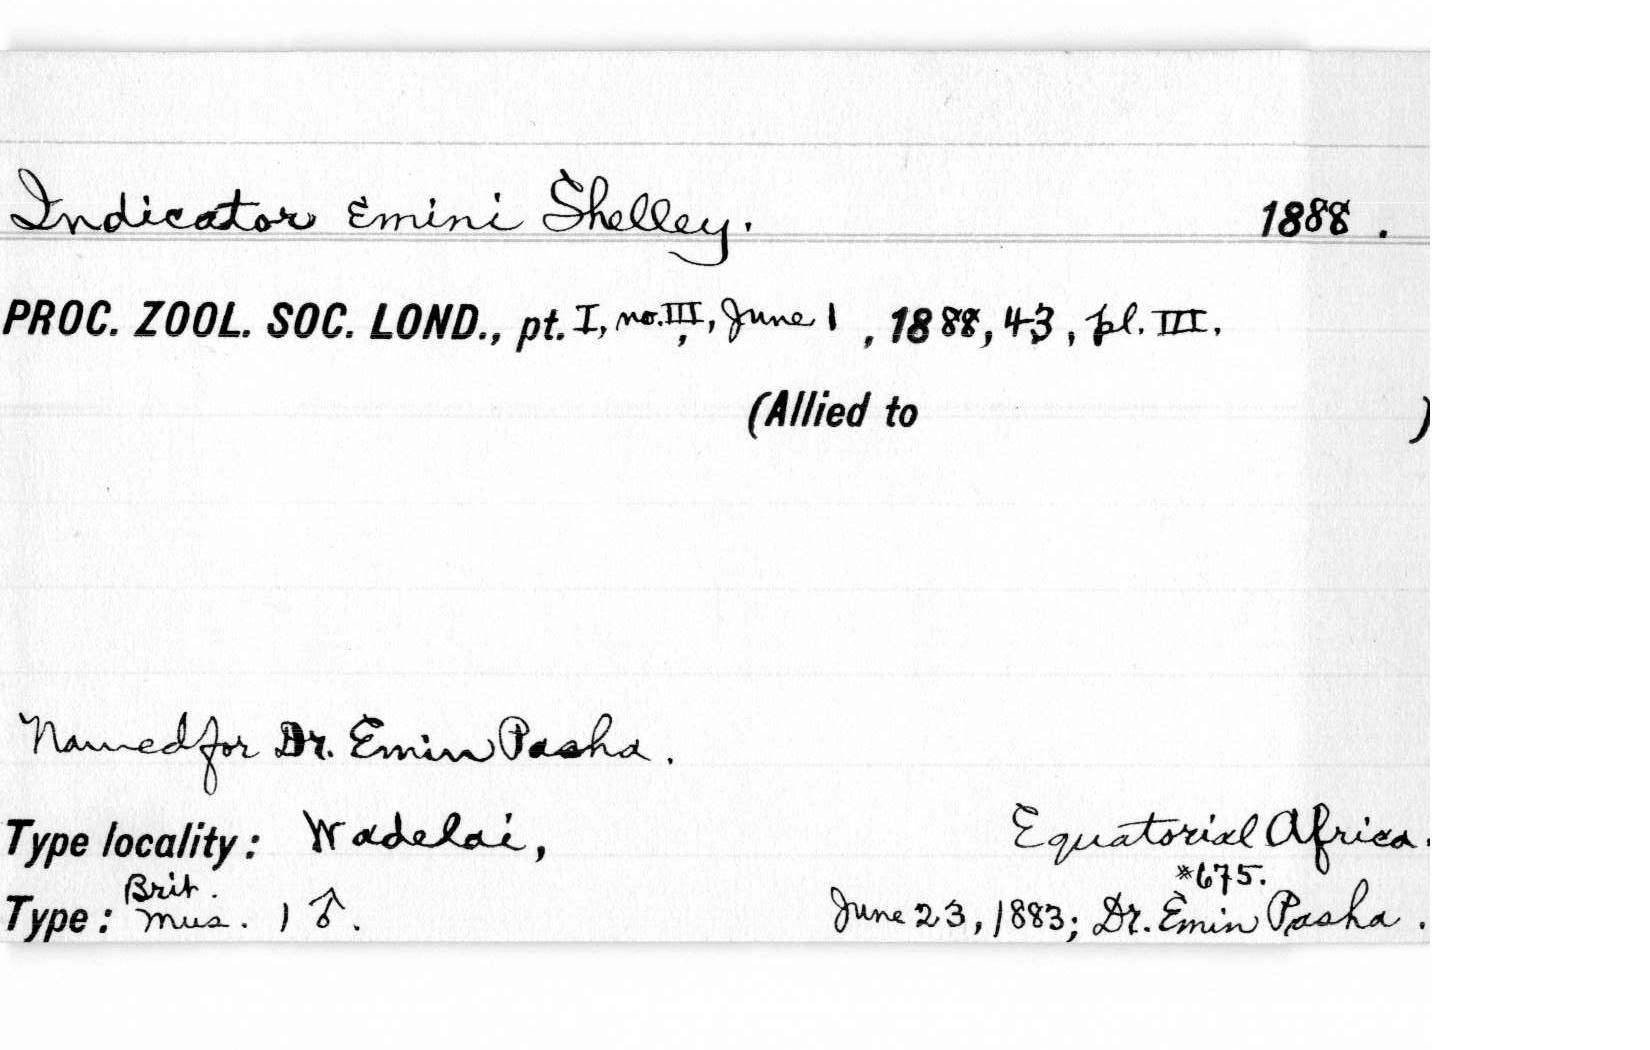 Indicator Emini Shelley. 1888.
PROC. ZOOL. SOC. LOND., pt. I, no. III, June 1, 1888, 43, pl. III.
(Allied to )
Named for Dr. Emin Pasha.
Type locality: Wadelai, Equatorial Africa.
Brit. *675.
Type: Mus. 1 ♂. June 23, 1883; Dr. Emin Pasha.